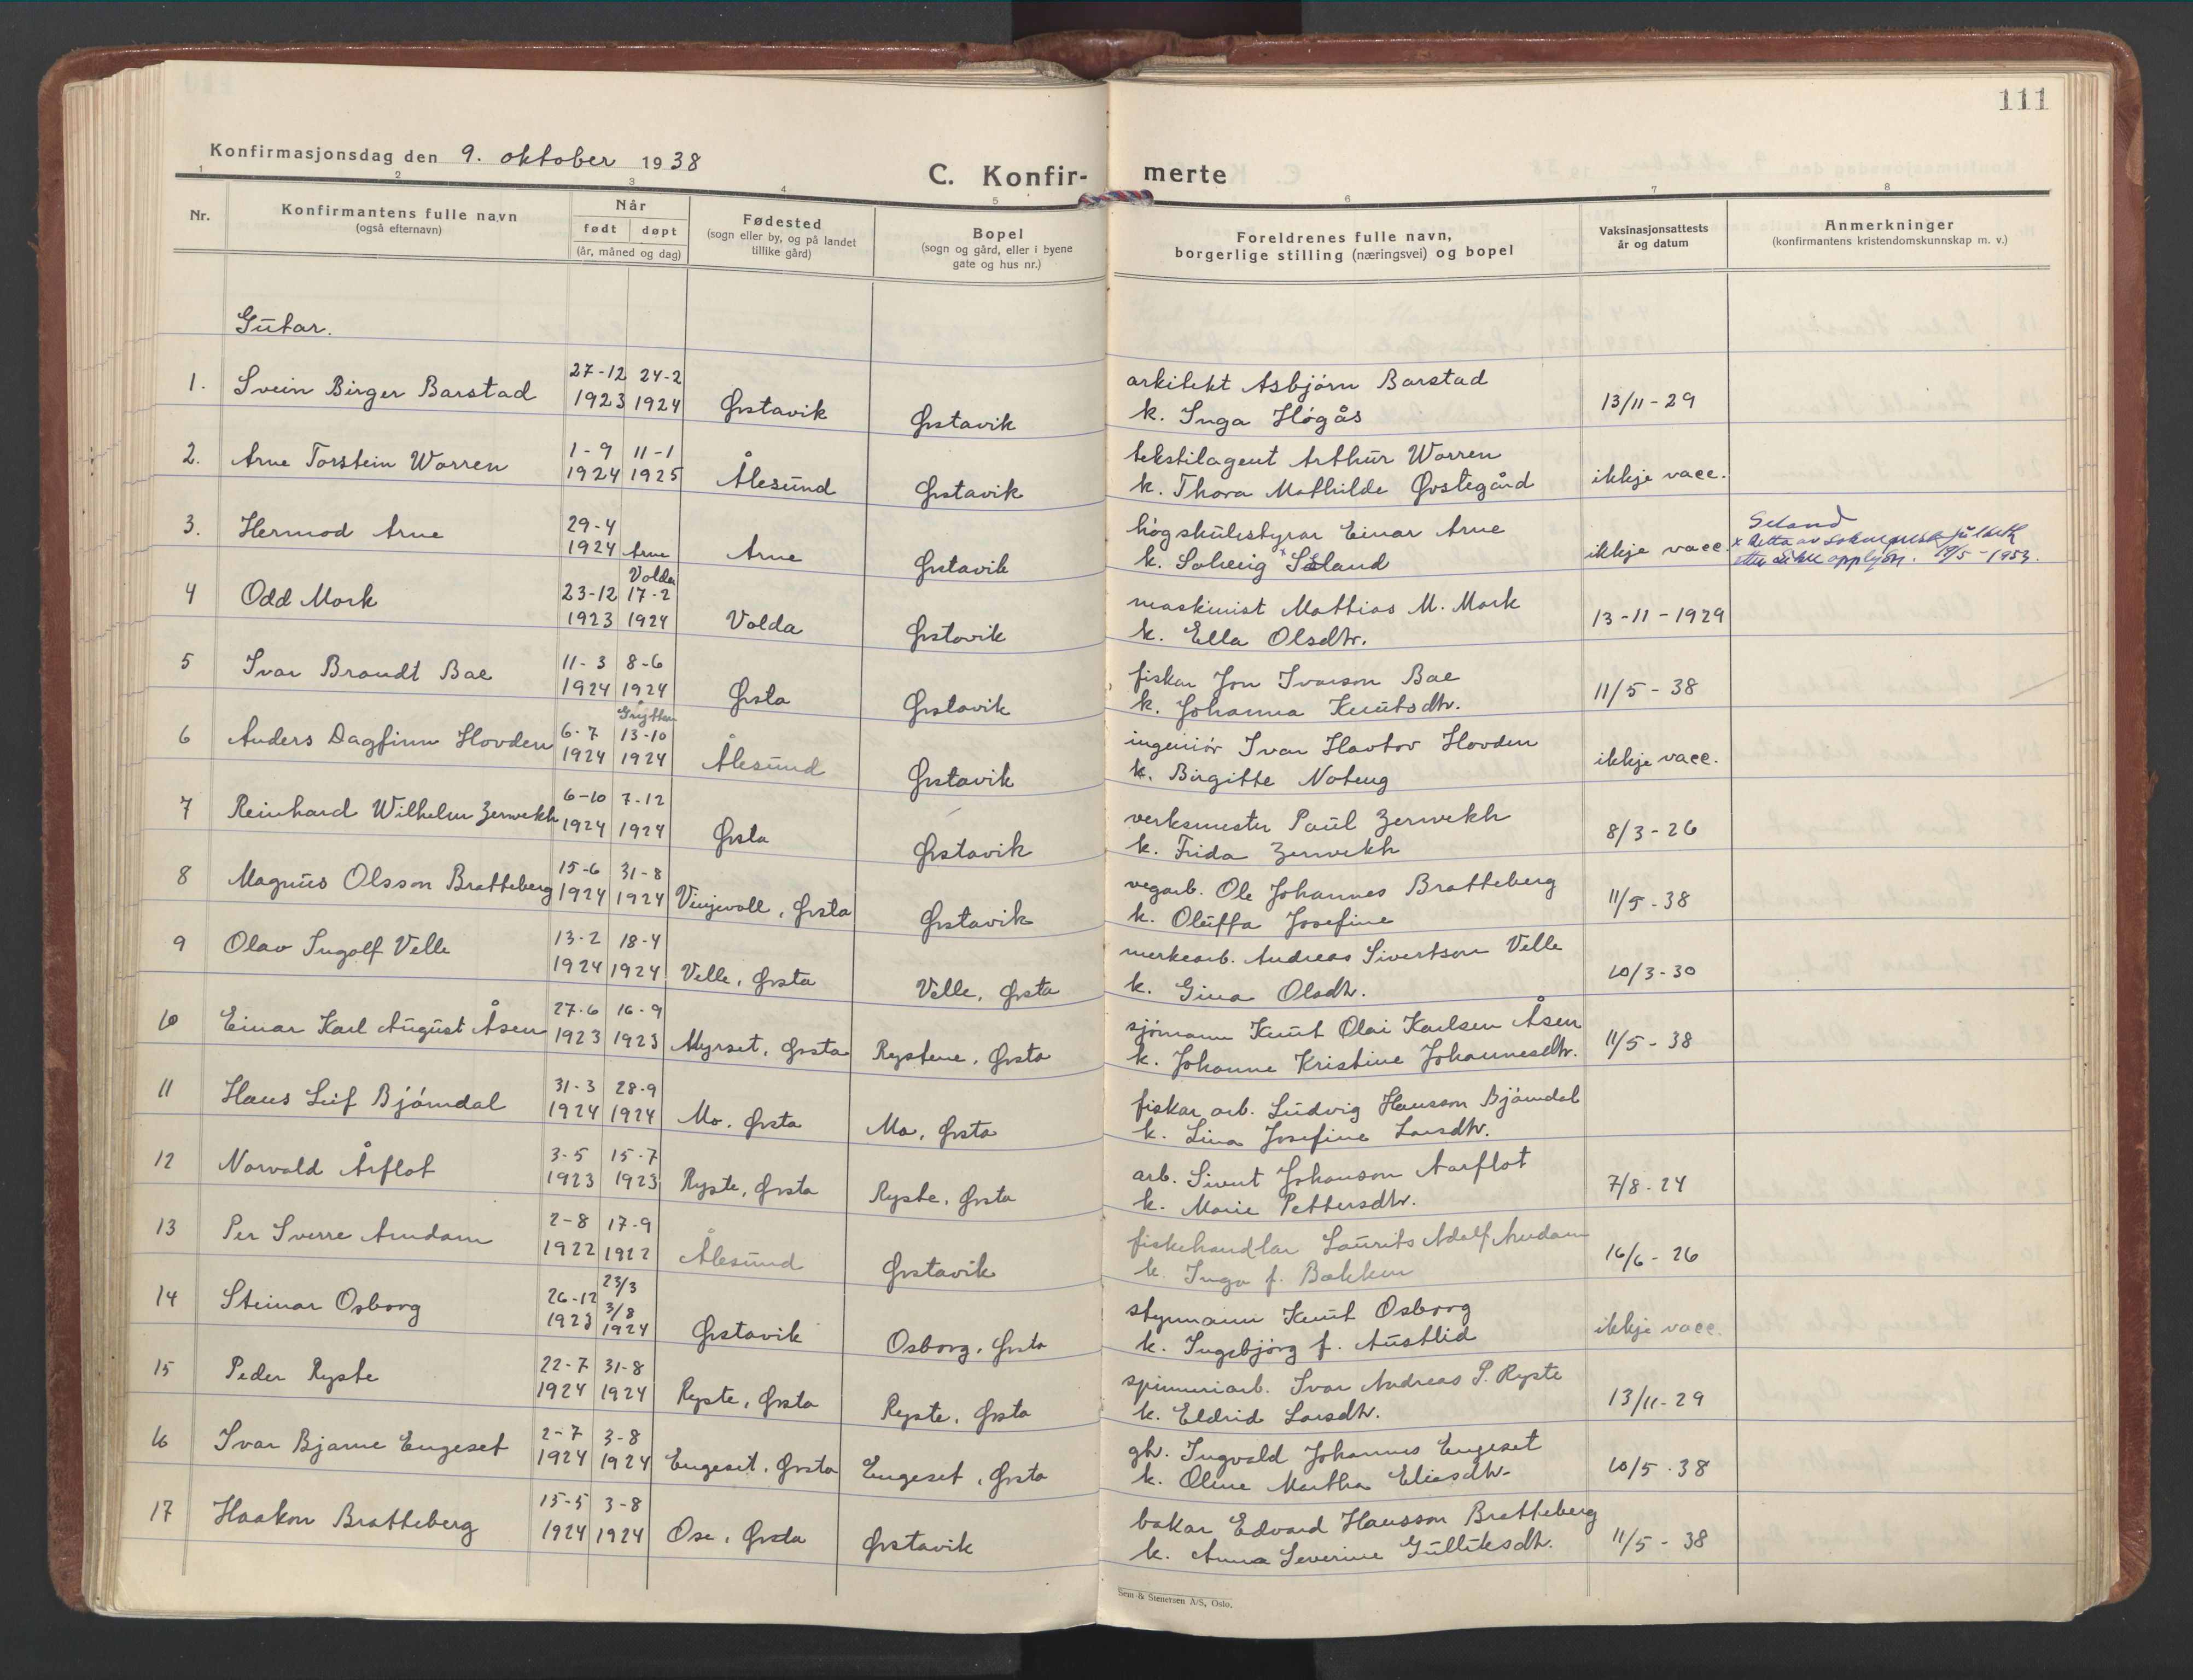 111
Konfirmasjonsdag den 9. oktober 1938
C. Konfir- merte
1 2 3 4 5 6 7 8
Nr.
Konfirmantens fulle navn
(også efternavn)
Når
født døpt
(år, måned og dag)
Fødested
(sogn eller by, og på landet
tillike gård)
Bopel
(sogn og gård, eller i byene
gate og hus nr.)
Foreldrenes fulle navn,
borgerlige stilling (næringsvei) og bopel
Vaksinasjonsattests
år og datum
Anmerkninger
(konfirmantens kristendomskunnskap m. v.)
Gutar.
1. Svein Birger Barstad 27-12 1923 24-2 1924 Ørstavik Ørstavik arkitekt Asbjørn Barstad
k. Inga Høgås 13/11-29
2. Arne Torstein Warren 1-9 1924 11-1 1925 Ålesund Ørstavik tekstilagent Arthur Warren
k. Thora Mathilde Østegård ikkje vacc.
3. Hermod Arne 29-4 1924 Arne Arne Ørstavik høgskulestyrar Einar Arne
k. Solveig x Seland ikkje vacc. Seland
x Retta av
etter opplysn. 19/5-1953.
4 Odd Mork 23-12 1923 Volda 17-2 1924 Volda Ørstavik maskinist Mathias M. Mork
k. Ella Olsdtr. 13-11-1929
5 Ivar Brandt Bae 11-3 1924 8-6 1924 Ørsta Ørstavik fiskar Jon Ivarson Bae
k. Johanna Knutsdtr. 11/5-38
6 Anders Dagfinn Hovden 6-7 1924 Grytten 13-10 1924 Ålesund Ørstavik ingeniør Ivar Havtor Hovden
k. Birgitte Noteng ikkje vacc.
7 Reinhard Wilhelm Zerwekh 6-10 1924 7-12 1924 Ørsta Ørstavik verksmester Paul Zerwekh
k. Frida Zerwekh 8/3-26
8 Magnus Olsson Bratteberg 15-6 1924 31-8 1924 Vinjevoll, Ørsta Ørstavik vegarb. Ole Johannes Bratteberg
k. Oluffa Josefine 11/5-38
9 Olav Ingolf Velle 13-2 1924 18-4 1924 Velle, Ørsta Velle, Ørsta merkearb. Andreas Sivertson Velle
k. Gina Olsdtr. 10/3-30
10 Einar Karl August Åsen 27-6 1923 16-9 1923 Myrset, Ørsta Rystene, Ørsta sjømann Knut Olai Karlsen Åsen
k. Johanne Kristine Johannesdtr. 11/5-38
11 Hans Leif Bjørndal 31-3 1924 28-9 1924 Mo, Ørsta Mo, Ørsta fiskar arb. Ludvig Hansson Bjørndal
k. Lina Josefine Larsdtr.
12 Norvald Årflot 3-5 1923 15-7 1923 Ryste, Ørsta Ryste, Ørsta arb. Sivert Johanson Aarflot
k. Marie Pettersdtr. 7/8-24
13 Per Sverre Amdam 2-8 1922 17-9 1922 Ålesund Ørstavik fiskehandlar Laurits Adolf Amdam
k. Inga f. Bakken 16/6-26
14 Steinar Osborg 26-12 1923 23/3 3/8 1924 Ørstavik Osborg, Ørsta styrmann Knut Osborg
k. Ingebjørg f. Austlid ikkje vacc.
15 Peder Ryste 22-7 1924 31-8 1924 Ryste, Ørsta Ryste, Ørsta spinneriarb. Ivar Andreas P. Ryste
k. Eldrid Larsdtr. 13/11-29
16 Ivar Bjarne Engeset 2-7 1924 3-8 1924 Engeset, Ørsta Engeset, Ørsta gbr. Ingvald Johannes Engeset
k. Oline Martha Eliasdtr. 10/5-38
17 Haakon Bratteberg 15-5 1924 3-8 1924 Ose, Ørsta Ørstavik bakar Edvard Hansson Bratteberg
k. Anna Severine Gulliksdtr. 11/5-38
Sem & Stenersen A/S, Oslo.